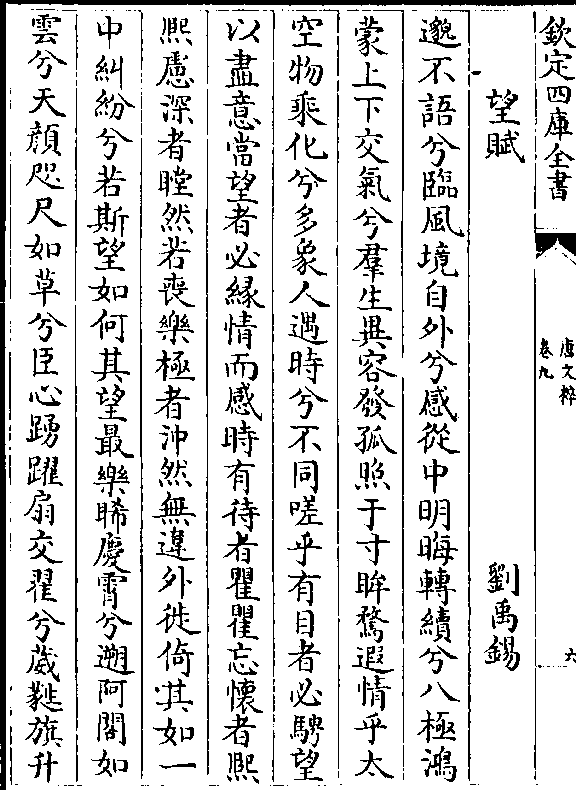 欽定四庫全書
唐文粹
卷九
六
望賦
劉禹錫
邈不語兮臨風境自外兮感從中明晦轉續兮八極鴻
蒙上下交氣兮羣生異容發孤照于寸眸騖遐情乎太
空物乘化兮多象人遇時兮不同嗟乎有目者必騁望
以盡意當望者必緣情而感時有待者瞿瞿忘懷者熙
熙慮深者瞠然若喪樂極者沖然無違外徙倚其如一
中糾紛兮若斯望如何其望最樂睎慶霄兮遡阿閣如
雲兮天顔咫尺如草兮臣心踴躍扇交翟兮葳蕤旗升